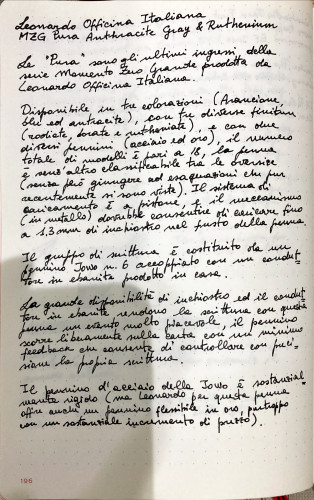 Leonardo Officina Italiana
MZG Pura Anthracite Gray & Ruthenium
Le "Pura" sono gli ultimi ingressi della
serie Momento Zero Grande prodotta da
Leonardo Officina Italiana.
Disponibile in tre colorazioni (Arancione,
blu ed antracite), con tre diverse finiture
(rodiate, dorate e ruteniate), e con due
diversi pennini (acciaio ed oro), il numero
totale di modelli è pari a 18, la penna
è senz'altro classificabile tra le oversize
(senza però giungere ad esagerazioni che pur
recentemente si sono viste). Il sistema di
caricamento è a pistone, e il meccanismo
(in metallo) dovrebbe consentire di caricare fino
a 1,3 mm di inchiostro nel fusto della penna.
Il gruppo di scrittura è costituito da un
pennino Jowo n. 6 accoppiato con un condut-
tore in ebanite prodotto in casa.
La grande disponibilità di inchiostro ed il condut-
tore in ebanite rendono la scrittura con questa
penna un evento molto piacevole, il pennino
scorre liberamente sulla carta con un minimo
feedback che consente di controllare con preci-
sione la propria scrittura.
Il pennino d'acciaio della Jowo è sostanzial-
mente rigido (ma Leonardo per questa penna
offre anche un pennino flessibile in oro, purtroppo
con un sostanziale incremento di prezzo).
196